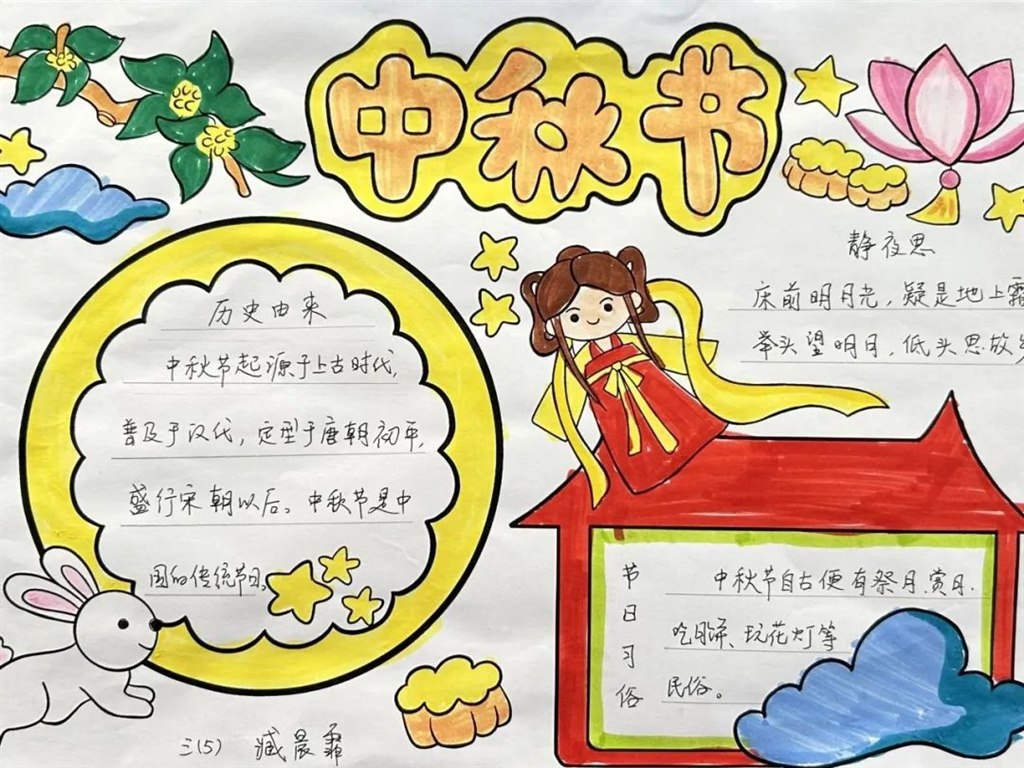 中秋节
静夜思
床前明月光，疑是地上霜
举头望明月，低头思故
历史由来
中秋节起源于上古时代，
普及于汉代，定型于唐朝初年，
盛行宋朝以后。中秋节是中
国的传统节日。
节日习俗
中秋节自古便有祭月、赏月、
吃月饼、玩花灯等
民俗。
三(5) 臧晨